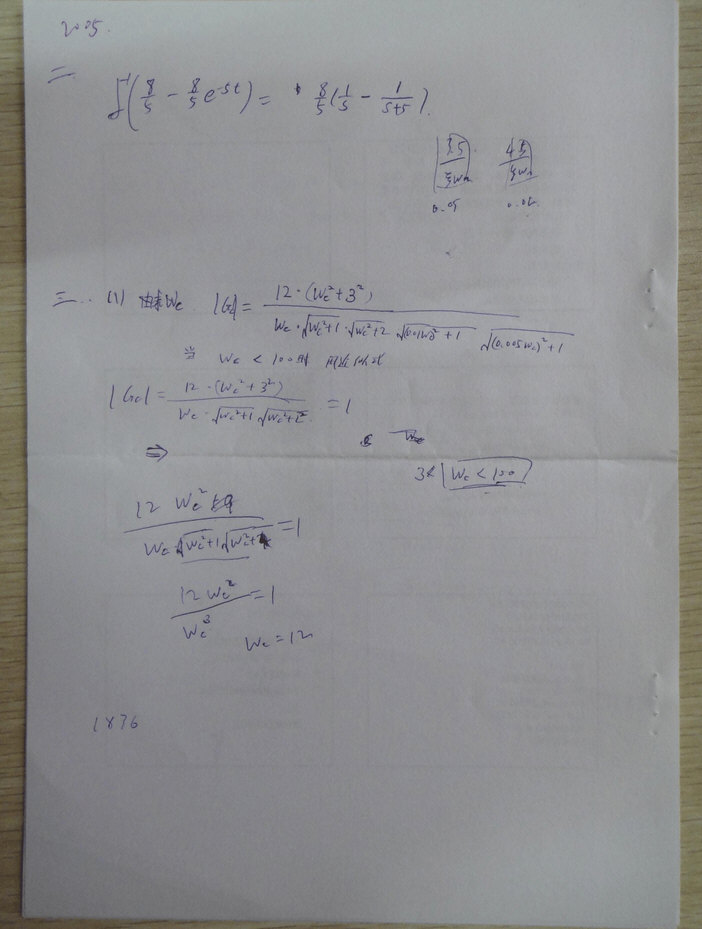 2005.
二
∫⁻¹(8/5 - 8/5 e^-5t) = 8/5(1/s - 1/(s+5)).
3.5/ξwn 4.5/ξwn
0.05 0.02
三.. (1) 由求Wc |G| = 12·(Wc²+3²) / (Wc·√(Wc²+1)·√(Wc²+2) √((0.01Wc)²+1) √((0.005Wc)²+1))
当 Wc < 100时
|Gc| = 12·(Wc²+3²) / (Wc·√(Wc²+1) √(Wc²+2²)) = 1
⇒
3< Wc < 100
12 Wc² / (Wc √(Wc²+1) √(Wc²+4)) = 1
12Wc² / Wc³ = 1
Wc = 12
1836